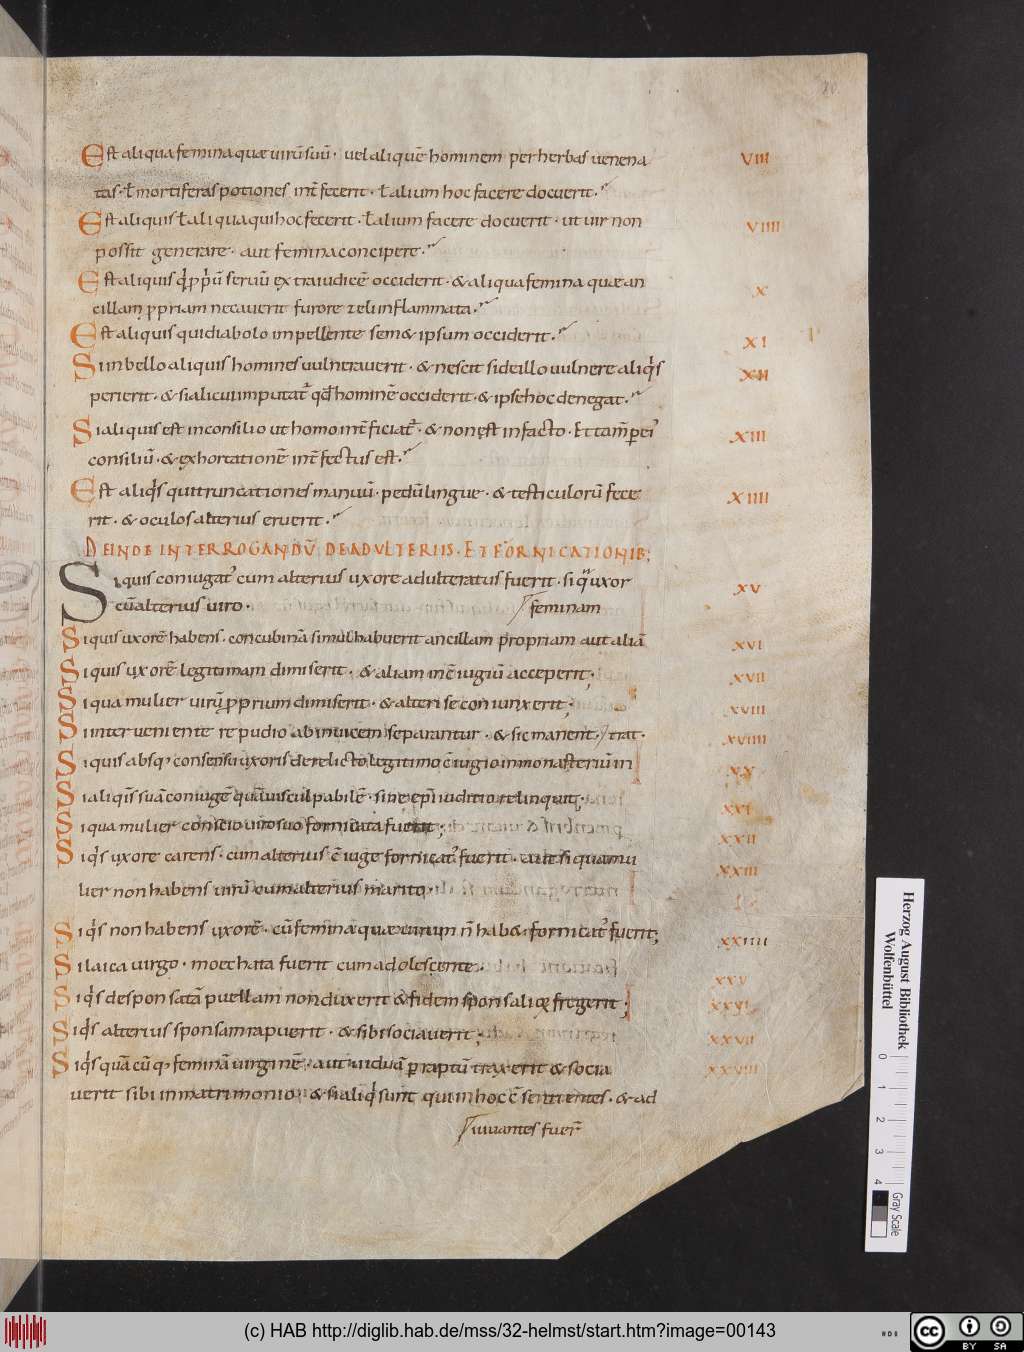 Est aliqua femina quæ uirū suū · uel aliquē hominem per herbas uenena VIII
tas · ł mortiferas potiones int̄fecerit · ł alium hoc facere docuerit.
Est aliquis ł aliqua qui hoc fecerit · ł alium facere docuerit · ut uir non VIIII
possit generare · aut femina concipere.
Est aliquis q̇ ꝓpriū seruū extra iudicē occiderit · & aliqua femina quæ an X
cillam ꝓpriam necauerit furore zeli inflammata.
Est aliquis qui diabolo impellente sem& ipsum occiderit. XI
Si in bello aliquis homines uulnerauerit · & nescit si de illo uulnere aliq̇s XII
perierit · & si alicui imputat̉ qđ hominē occiderit · & ipse hoc denegat.
Si aliquis est in consilio ut homo int̄ficiat̉ · & non est in facto · Et tam̄ ꝑ ei' XIII
consiliū · & exhortationē int̄fectus est.
Est aliq̇s qui truncationes manuū · pedū lingue · & testiculorū fece XIIII
rit · & oculos alterius eruerit.
DEINDE INTERROGANDŪ DE ADVLTERIIS · ET FORNICATIONIB;
Si quis coniugat̉ cum alterius uxore adulteratus fuerit · si q̄ uxor XV
cū alterius uiro · feminam
Si quis uxorē habens · concubinā simul habuerit ancillam propriam aut aliā XVI
Si quis uxorē legitimam dimiserit · & aliam in c̄iugiū acceperit; XVII
Si qua mulier uirū ꝓprium dimiserit · & alteri se coniunxerit; XVIII
Si interueniente repudio abinuicem separantur · & sic manent · trat · XVIIII
Si quis absq; consensu uxoris derelicto legitimo c̄iugio in monasteriū in XX
Si aliq̇s suā coniugē quāuis culpabilē · sine ep̄i iuditio relinquit; XXI
Si qua mulier conscio uiro suo fornicata fuerit; XXII
Si q̇s uxore carens · cum alterius c̄iuge fornicat̉ fuerit · aut si qua mu XXIII
lier non habens uirū cum alterius marito ·
Si q̇s non habens uxorē · cū femina quæ uirum n̄ hab& fornicat̉ fuerit; XXIIII
Si laica uirgo · moechata fuerit cum adolescente · XXV
Si q̇s desponsatā puellam non duxerit & fidem sponsalioꝝ fregerit; XXVI
Si q̇s alterius sponsam rapuerit · & sibi sociauerit; XXVII
Si q̇s quā cū q; feminā uirginē · aut uiduā ꝑ raptū traxerit & socia XXVIII
uerit sibi in matrimonio · & si aliq̇ sunt qui in hoc c̄sentientes · & ad
iuuantes fuer̄
Herzog August Bibliothek
Wolfenbüttel
0 1 2 3 4
Gray Scale
(c) HAB http://diglib.hab.de/mss/32-helmst/start.htm?image=00143
cc BY SA